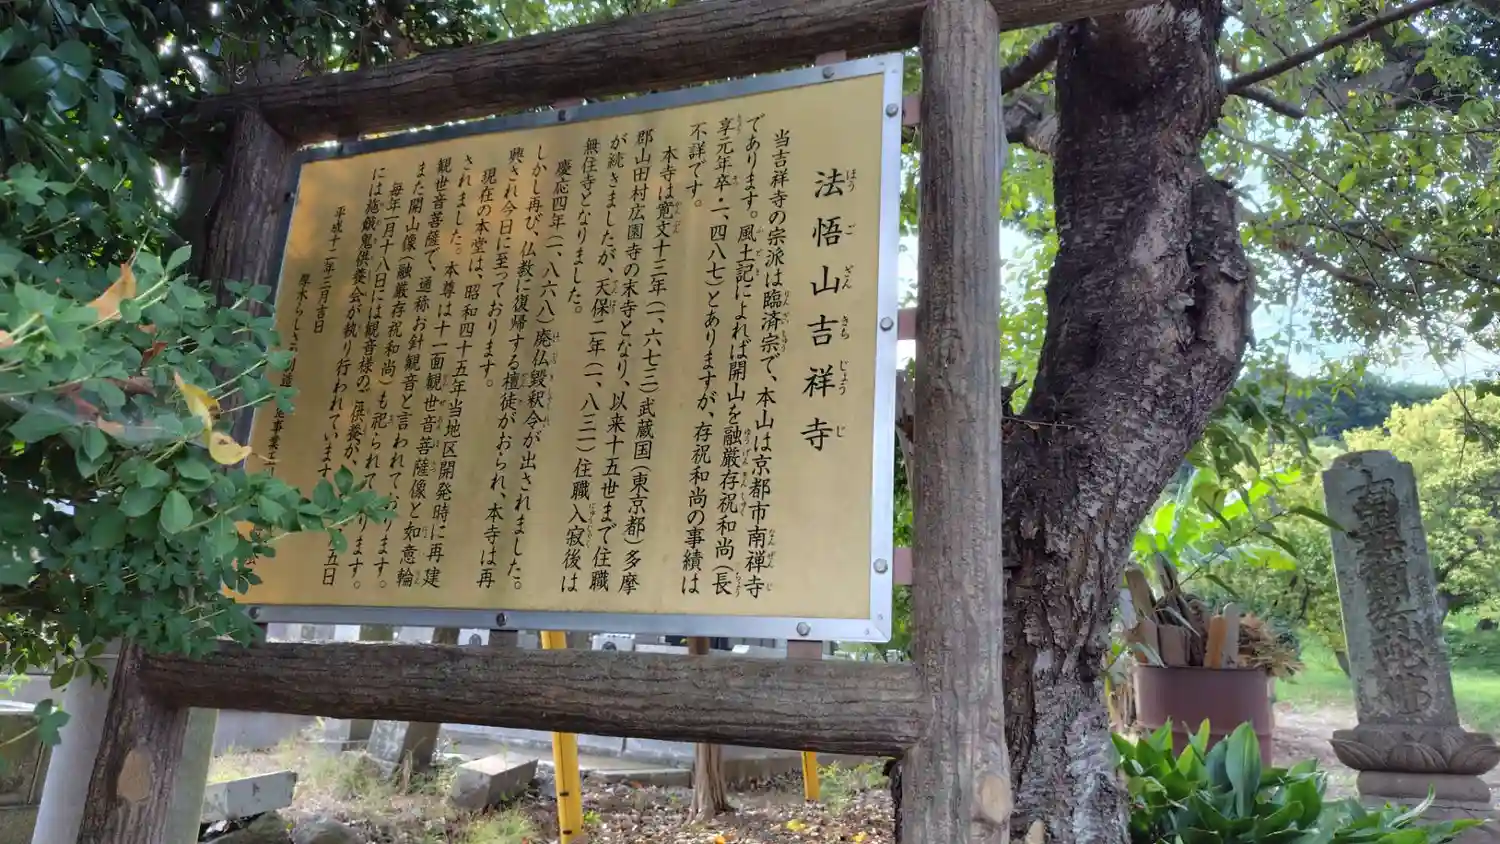 法悟山吉祥寺
ほうござんきちじょうじ
当吉祥寺の宗派は臨済宗で、本山は京都市南禅寺
であります。風土記によれば開山を融厳存祝和尚(長
享元年卒・一、四八七)とありますが、存祝和尚の事績は
不詳です。
本寺は寛文十三年(一、六七三)武蔵国(東京都)多摩
郡山田村広園寺の末寺となり、以来十五世まで住職
が続きましたが、天保二年(一、八三一)住職入寂後は
無住寺となりました。
慶応四年(一、八六八)廃仏毀釈令が出されました。
しかし再び、仏教に復帰する檀徒がおられ、本寺は再
興され今日に至っております。
現在の本堂は、昭和四十五年当地区開発時に再建
されました。本尊は十一面観世音菩薩像と如意輪
観世音菩薩で、通称お針観音と言われております。
また開山像(融厳存祝和尚)も祀られて
ります。
毎年一月十八日には観音様のご供養が、
五日
には施餓鬼供養会が執り行われています
平成十二年三月吉日
厚木らしさ